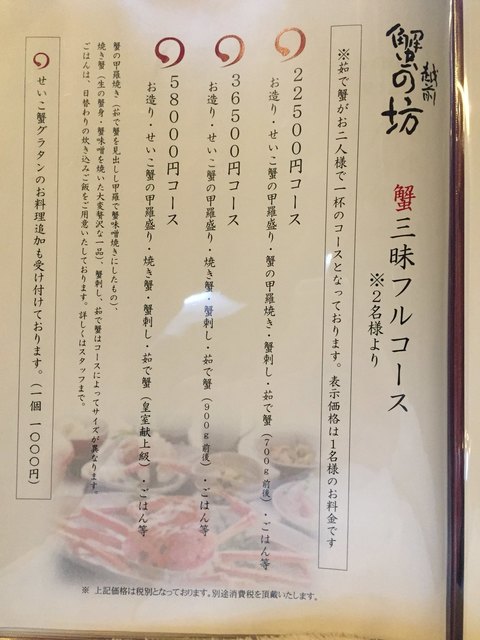 越前
蟹の坊
蟹三昧フルコース
※2名様より
※茹で蟹がお二人様で一杯のコースとなっております。表示価格は1名様のお料金です
22500円コース
お造り・せいこ蟹の甲羅盛り・蟹の甲羅焼き・蟹刺し・茹で蟹（700g前後）・ごはん等
36500円コース
お造り・せいこ蟹の甲羅盛り・焼き蟹・蟹刺し・茹で蟹（900g前後）・ごはん等
58000円コース
お造り・せいこ蟹の甲羅盛り・焼き蟹・蟹刺し・茹で蟹（皇室献上級）・ごはん等
蟹の甲羅焼き（茹で蟹を見出しし甲羅で蟹味噌焼きにしたもの）、
焼き蟹（生の蟹身・蟹味噌を焼いた大変贅沢な一品）、蟹刺し、茹で蟹はコースによってサイズが異なります。
ごはんは、日替わりの炊き込みご飯をご用意いたしております。詳しくはスタッフまで。
せいこ蟹グラタンのお料理追加も受け付けております。（一個 一〇〇〇円）
※ 上記価格は税別となっております。別途消費税を頂戴いたします。